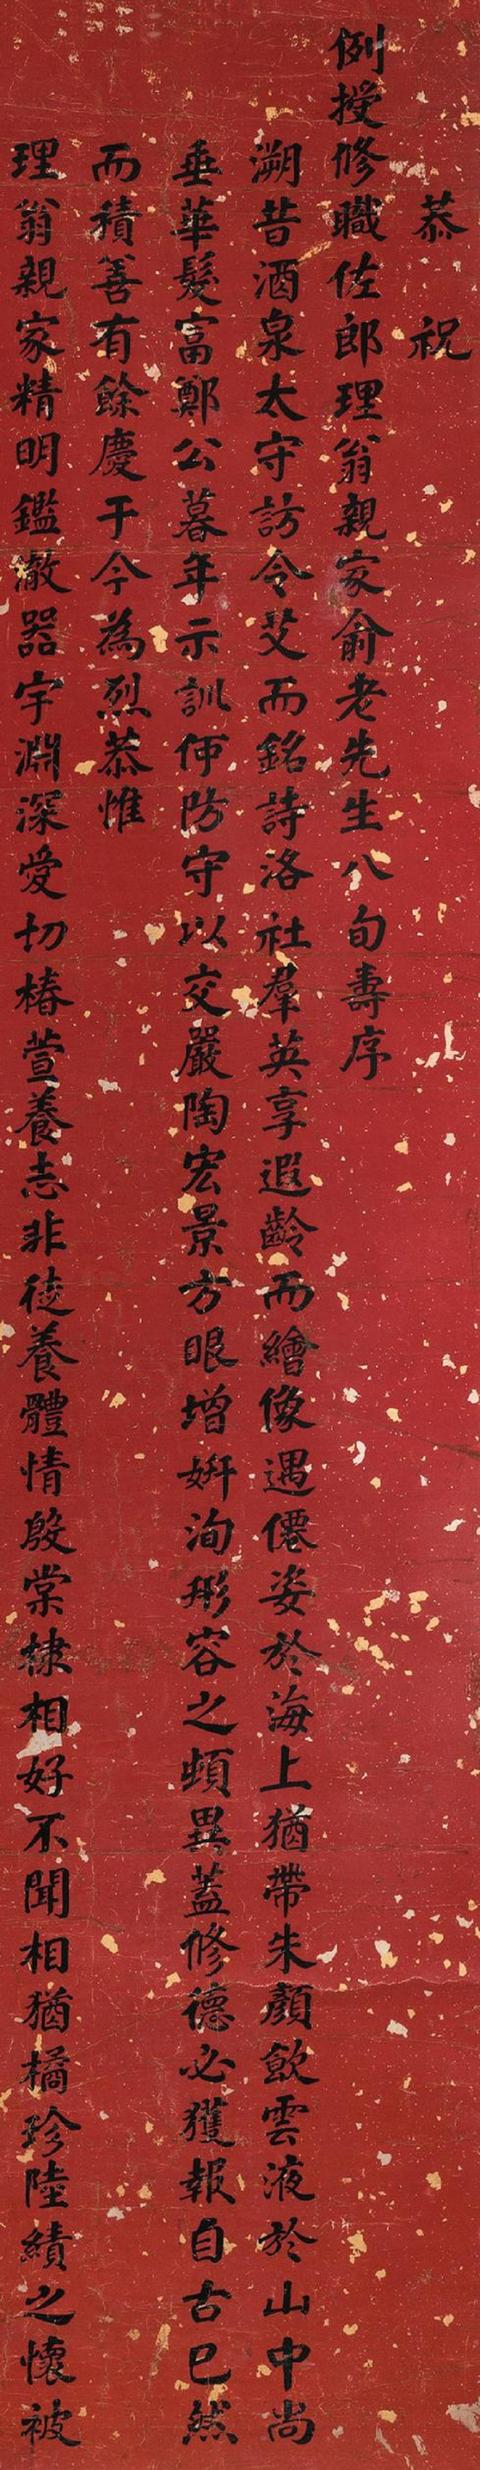 恭祝
例授修職佐郎理翁親家俞老先生八旬壽序
溯昔酒泉太守訪令艾而銘詩洛社羣英享遐齡而繪像遇僊姿於海上猶帶朱顏飲雲液於山中尚
垂華髮富鄭公暮年示訓伻防守以交嚴陶宏景方眼增姸洵形容之頓異蓋修德必獲報自古已然
而積善有餘慶于今為烈恭惟
理翁親家精明鑑澈器宇淵深愛切椿萱養志非徒養體情殷棠棣相好不聞相猶橘珍陸績之懷被